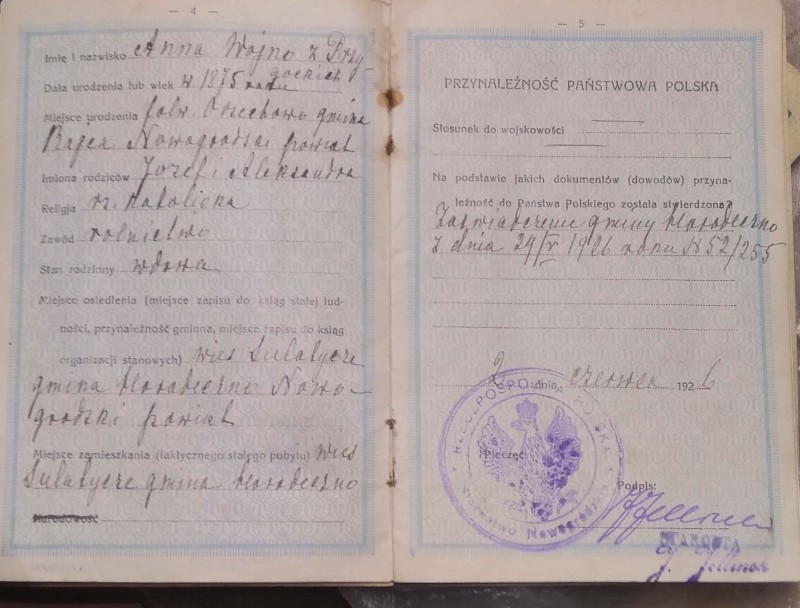 — 4 —
Imię i nazwisko Anna Wojno z Przy-
gockich
Data urodzenia lub wiek w 1875 roku
Miejsce urodzenia folw. Orzechowo gmina
Rajca Nowogrodzki powiat
Imiona rodziców Jozef i Aleksandra
Religja rz. katolicka
Zawód rolnictwo
Stan rodzinny wdowa
Miejsce osiedlenia (miejsce zapisu do ksiąg stałej lud-
ności, przynależność gminna, miejsce zapisu do ksiąg
organizacji stanowych) wieś Sulatycze
gmina Horodeczno Nowo-
grodzki powiat
Miejsce zamieszkania (faktycznego stałego pobytu) wieś
Sulatycze gmina Horodeczno
Narodowość
— 5 —
PRZYNALEŻNOŚĆ PAŃSTWOWA POLSKA
Stosunek do wojskowości
Na podstawie jakich dokumentów (dowodów) przyna-
leżność do Państwa Polskiego została stwierdzona?
Zaświadczenie gminy Horodeczno
z dnia 24/V 1926 roku N 52/255
2 dnia czerwca 1926
RZECZPOSPOLITA POLSKA
Starostwo Nowogródzkie
Pieczęć
Podpis:
STAROSTA